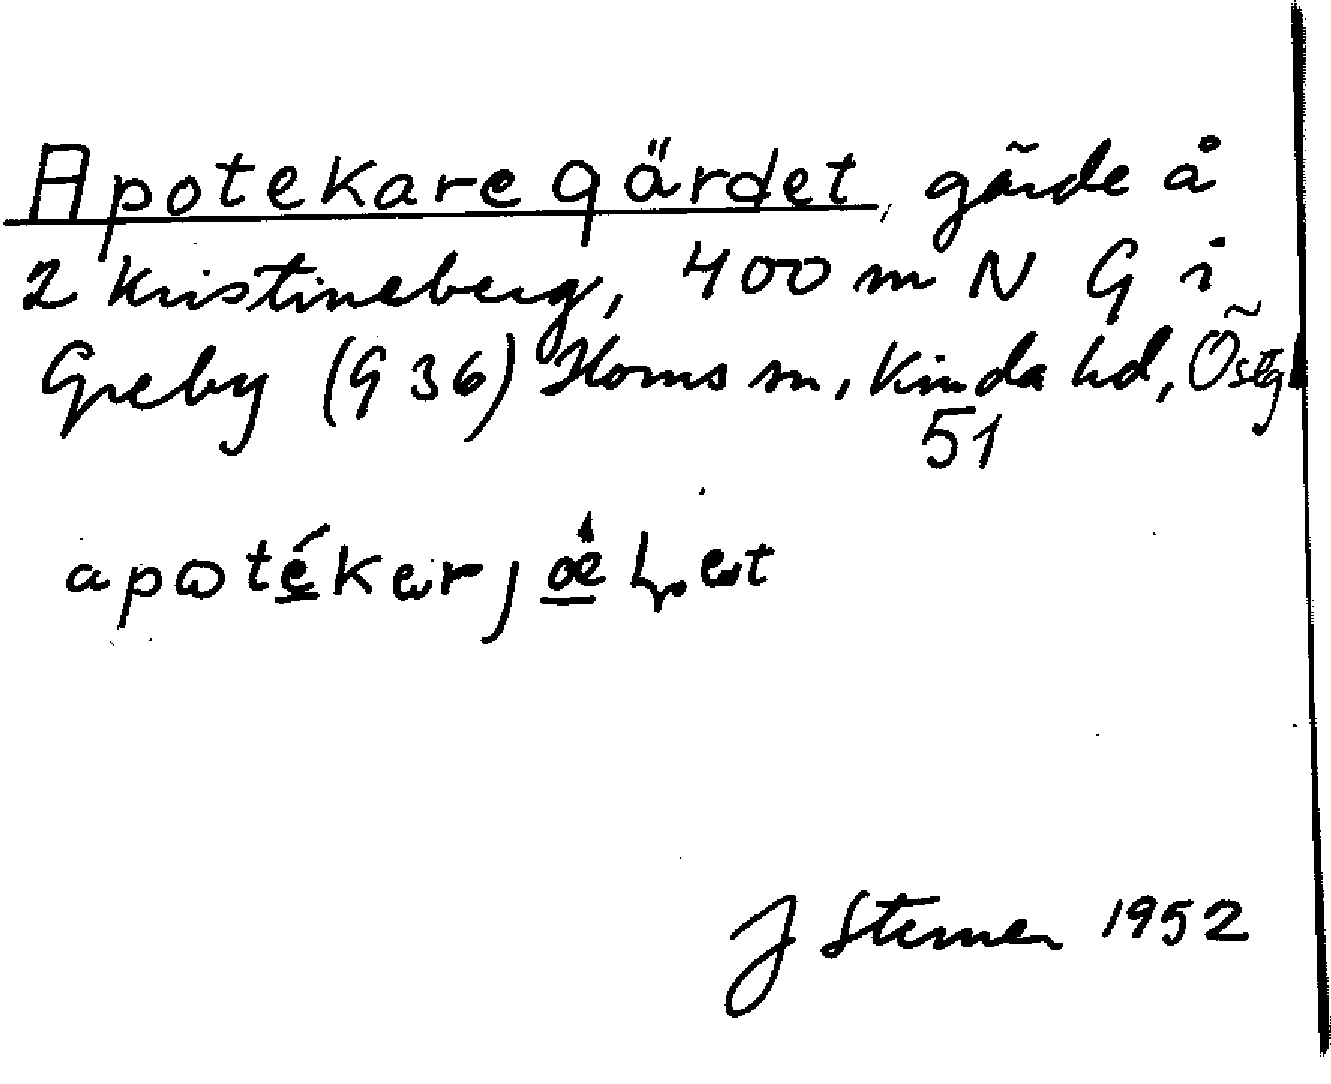 Apotekaregärdet, gärde å
2 Kristineberg, 400 m N G i
Greby (G 36) Horns sn, Kinda hd, Östg
51
J Sterner 1952